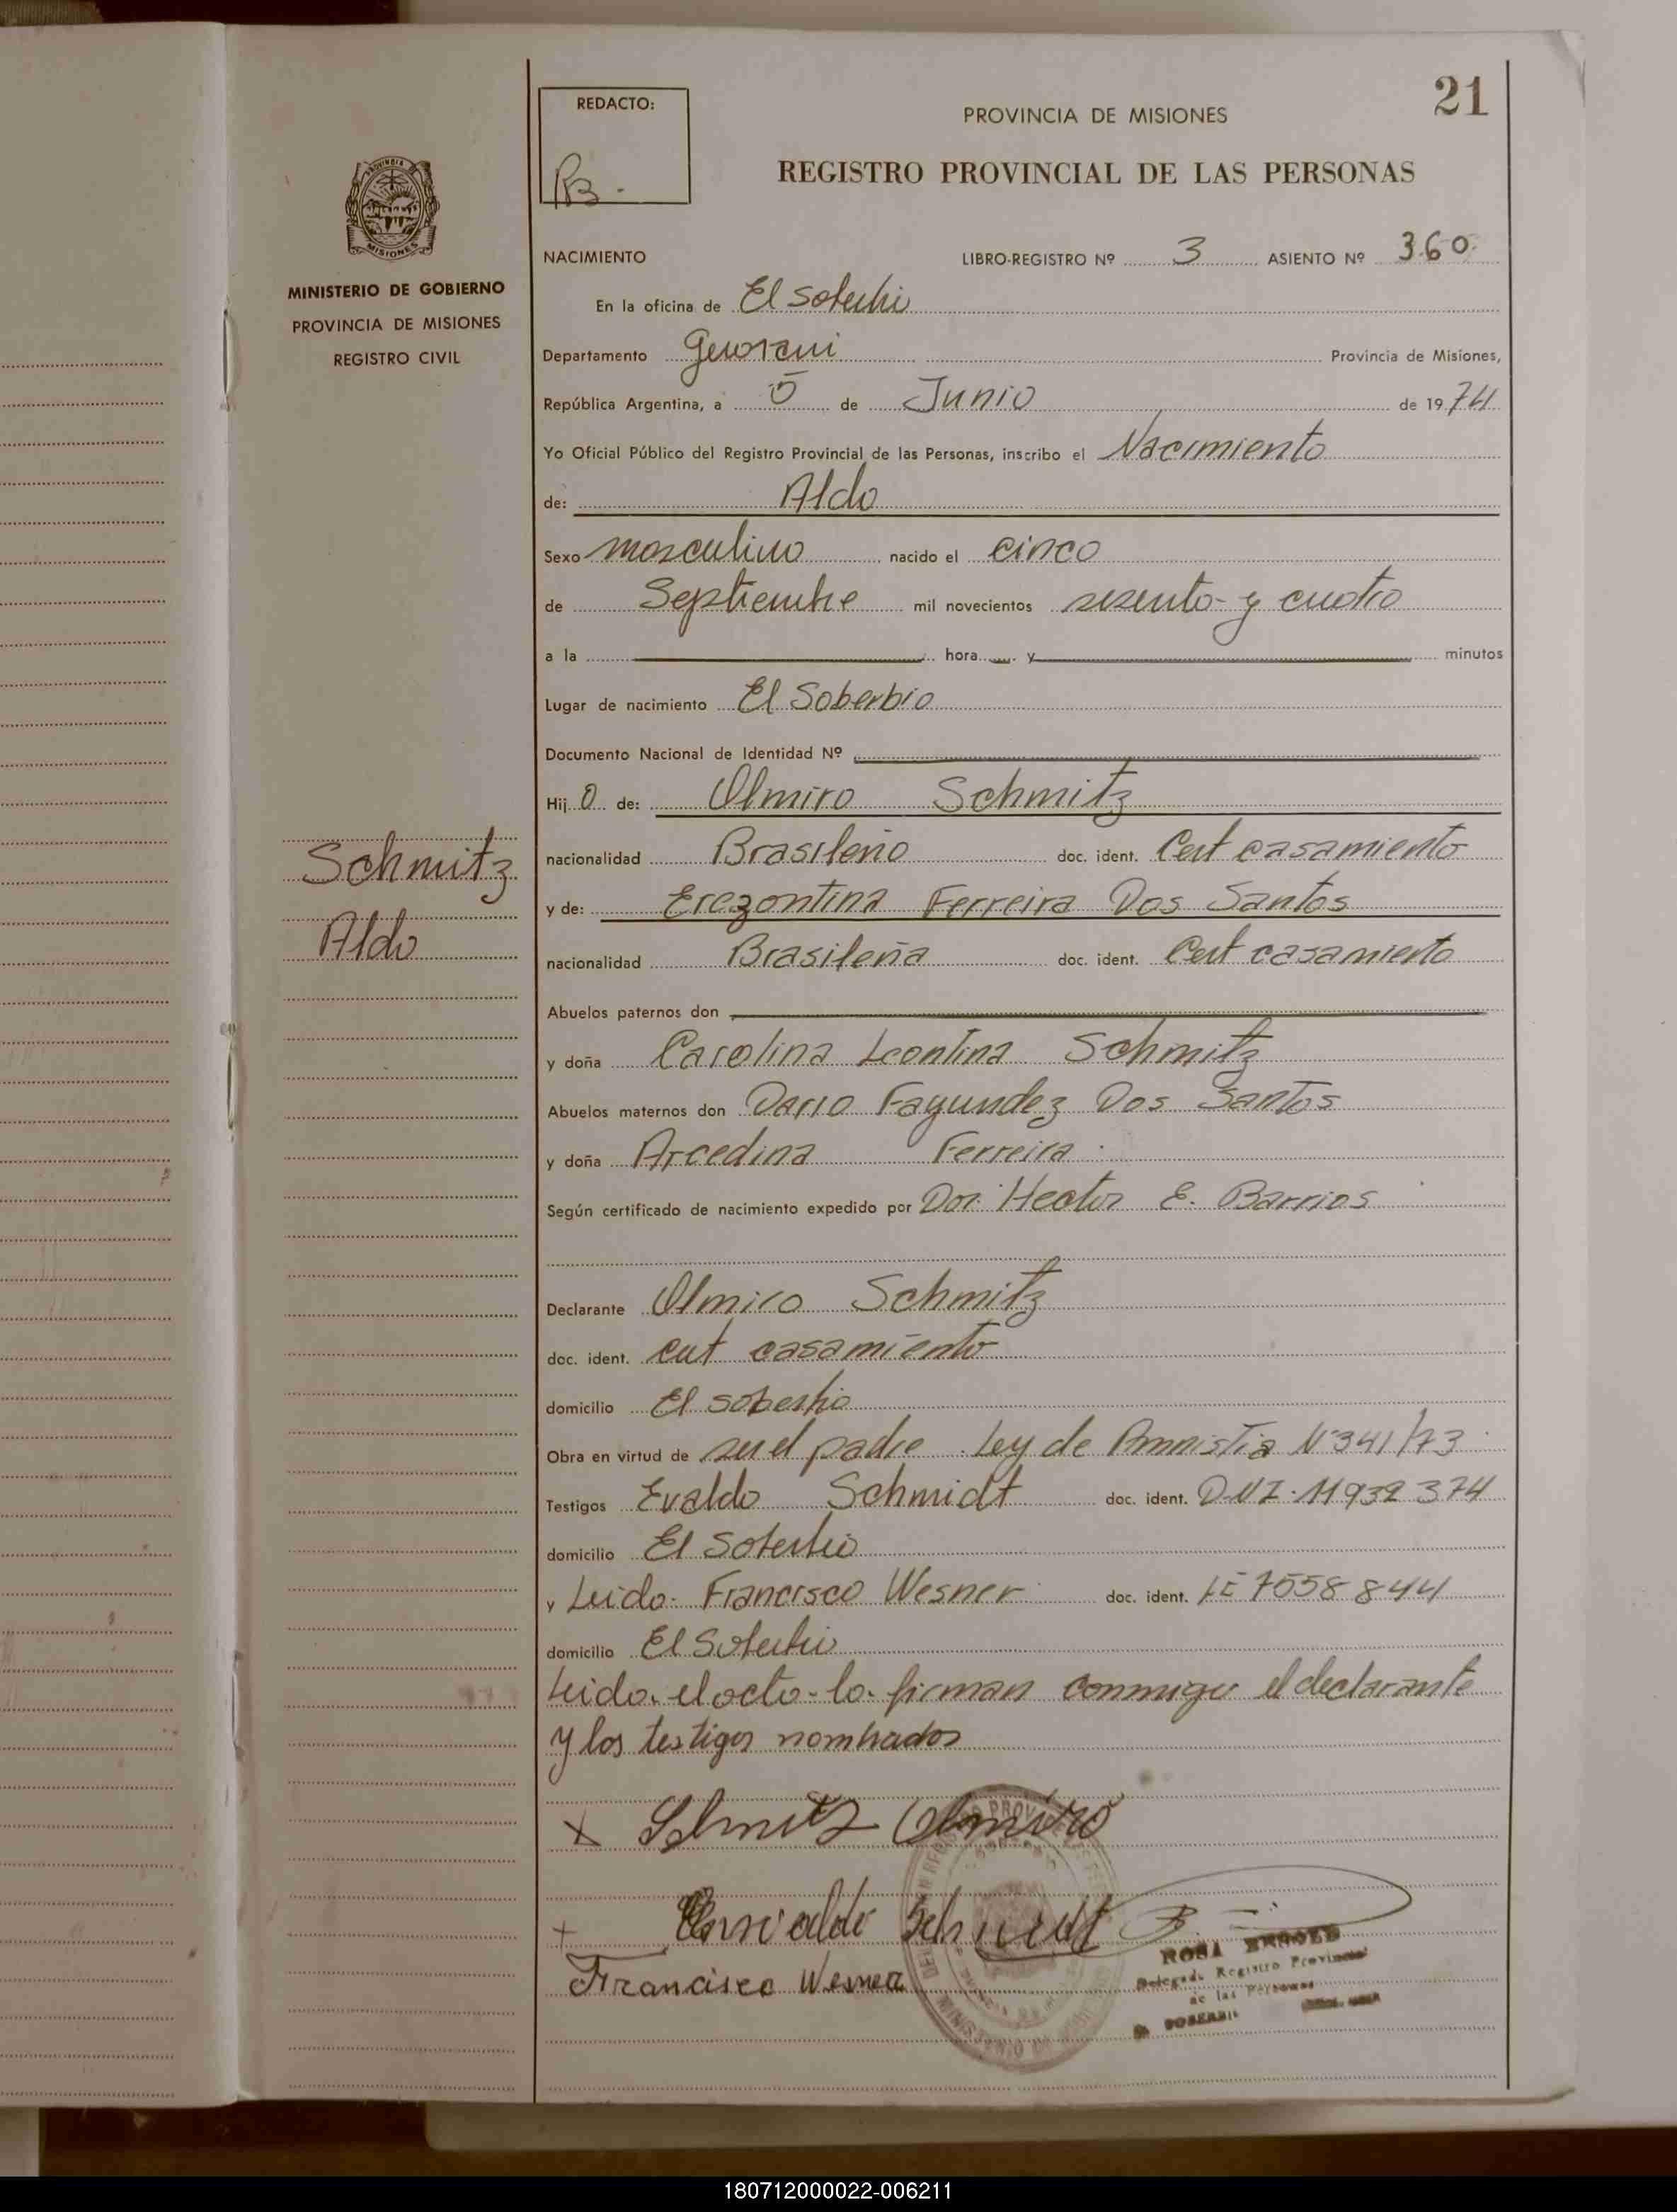 21
REDACTO:
PROVINCIA DE MISIONES
REGISTRO PROVINCIAL DE LAS PERSONAS
PROVINCIA
MISIONES
MINISTERIO DE GOBIERNO
PROVINCIA DE MISIONES
REGISTRO CIVIL
Schmitz
Aldo
NACIMIENTO LIBRO-REGISTRO Nº 3 ASIENTO Nº 360
En la oficina de El Soberbio
Departamento Guarani Provincia de Misiones,
República Argentina, a 5 de Junio de 1974
Yo Oficial Público del Registro Provincial de las Personas, inscribo el Nacimiento
de: Aldo
Sexo masculino nacido el cinco
de Septiembre mil novecientos sesenta y cuatro
a la hora y minutos
Lugar de nacimiento El Soberbio
Documento Nacional de Identidad Nº
Hij o de: Olmiro Schmitz
nacionalidad Brasileño doc. ident. Cert casamiento
y de: Erezontina Ferreira Dos Santos
nacionalidad Brasileña doc. ident. Cert casamiento
Abuelos paternos don
y doña Carolina Leontina Schmitz
Abuelos maternos don Dario Fagundez Dos Santos
y doña Arcedina Ferreira
Según certificado de nacimiento expedido por Dor. Hector E. Barrios
Declarante Olmiro Schmitz
doc. ident. Cert casamiento
domicilio El Soberbio
Obra en virtud de ser el padre Ley de Amnistia Nº 341/73
Testigos Evaldo Schmidt doc. ident. D.N.I. 11932374
domicilio El Soberbio
y Leido. Francisco Wesner doc. ident. LE 7558844
domicilio El Soberbio
Leido el acto lo firman conmigo el declarante
y los testigos nombrados
x Schmitz Olmiro
Schmidt
Francisco Wesner
ROSA
Delegada Registro Provincial
de las Personas
SOBERBIO
180712000022-006211